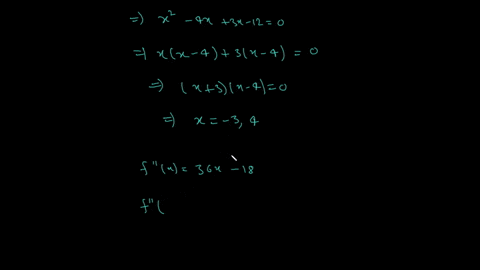 =) x² - 4x + 3x - 12 = 0
=) x(x-4) + 3(x-4) = 0
=) (x+3)(x-4) = 0
=) x = -3, 4
f"(x) = 36x - 18
f"(